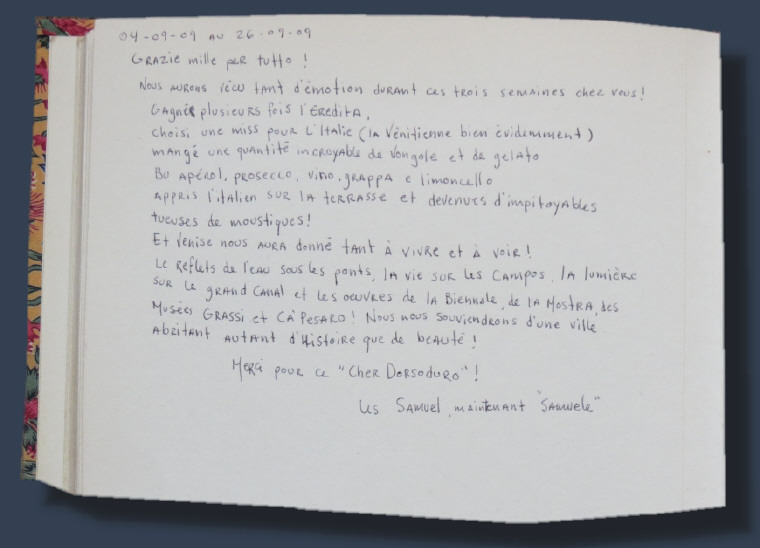 04-09-09 AU 26-09-09
GRAZIE mille per tutto !
Nous aurons vécu tant d'émotion durant ces trois semaines chez vous !
Gagné plusieurs fois l'Eredità,
choisi une miss pour l'Italie (la Vénitienne bien évidemment)
mangé une quantité incroyable de vongole et de gelato
Bu Apérol, prosecco, vino, grappa e limoncello
appris l'italien sur la terrasse et devenues d'impitoyables
tueuses de moustiques !
Et Venise nous aura donné tant à vivre et à voir !
Le reflets de l'eau sous les ponts, la vie sur les campos, la lumière
sur le grand canal et les oeuvres de la Biennale, de la Mostra, des
Musées Grassi et Ca'Pesaro ! Nous nous souviendrons d'une ville
abritant autant d'Histoire que de beauté !
Merci pour ce "Cher Dorsoduro" !
Les Samuel, maintenant "Samuele"